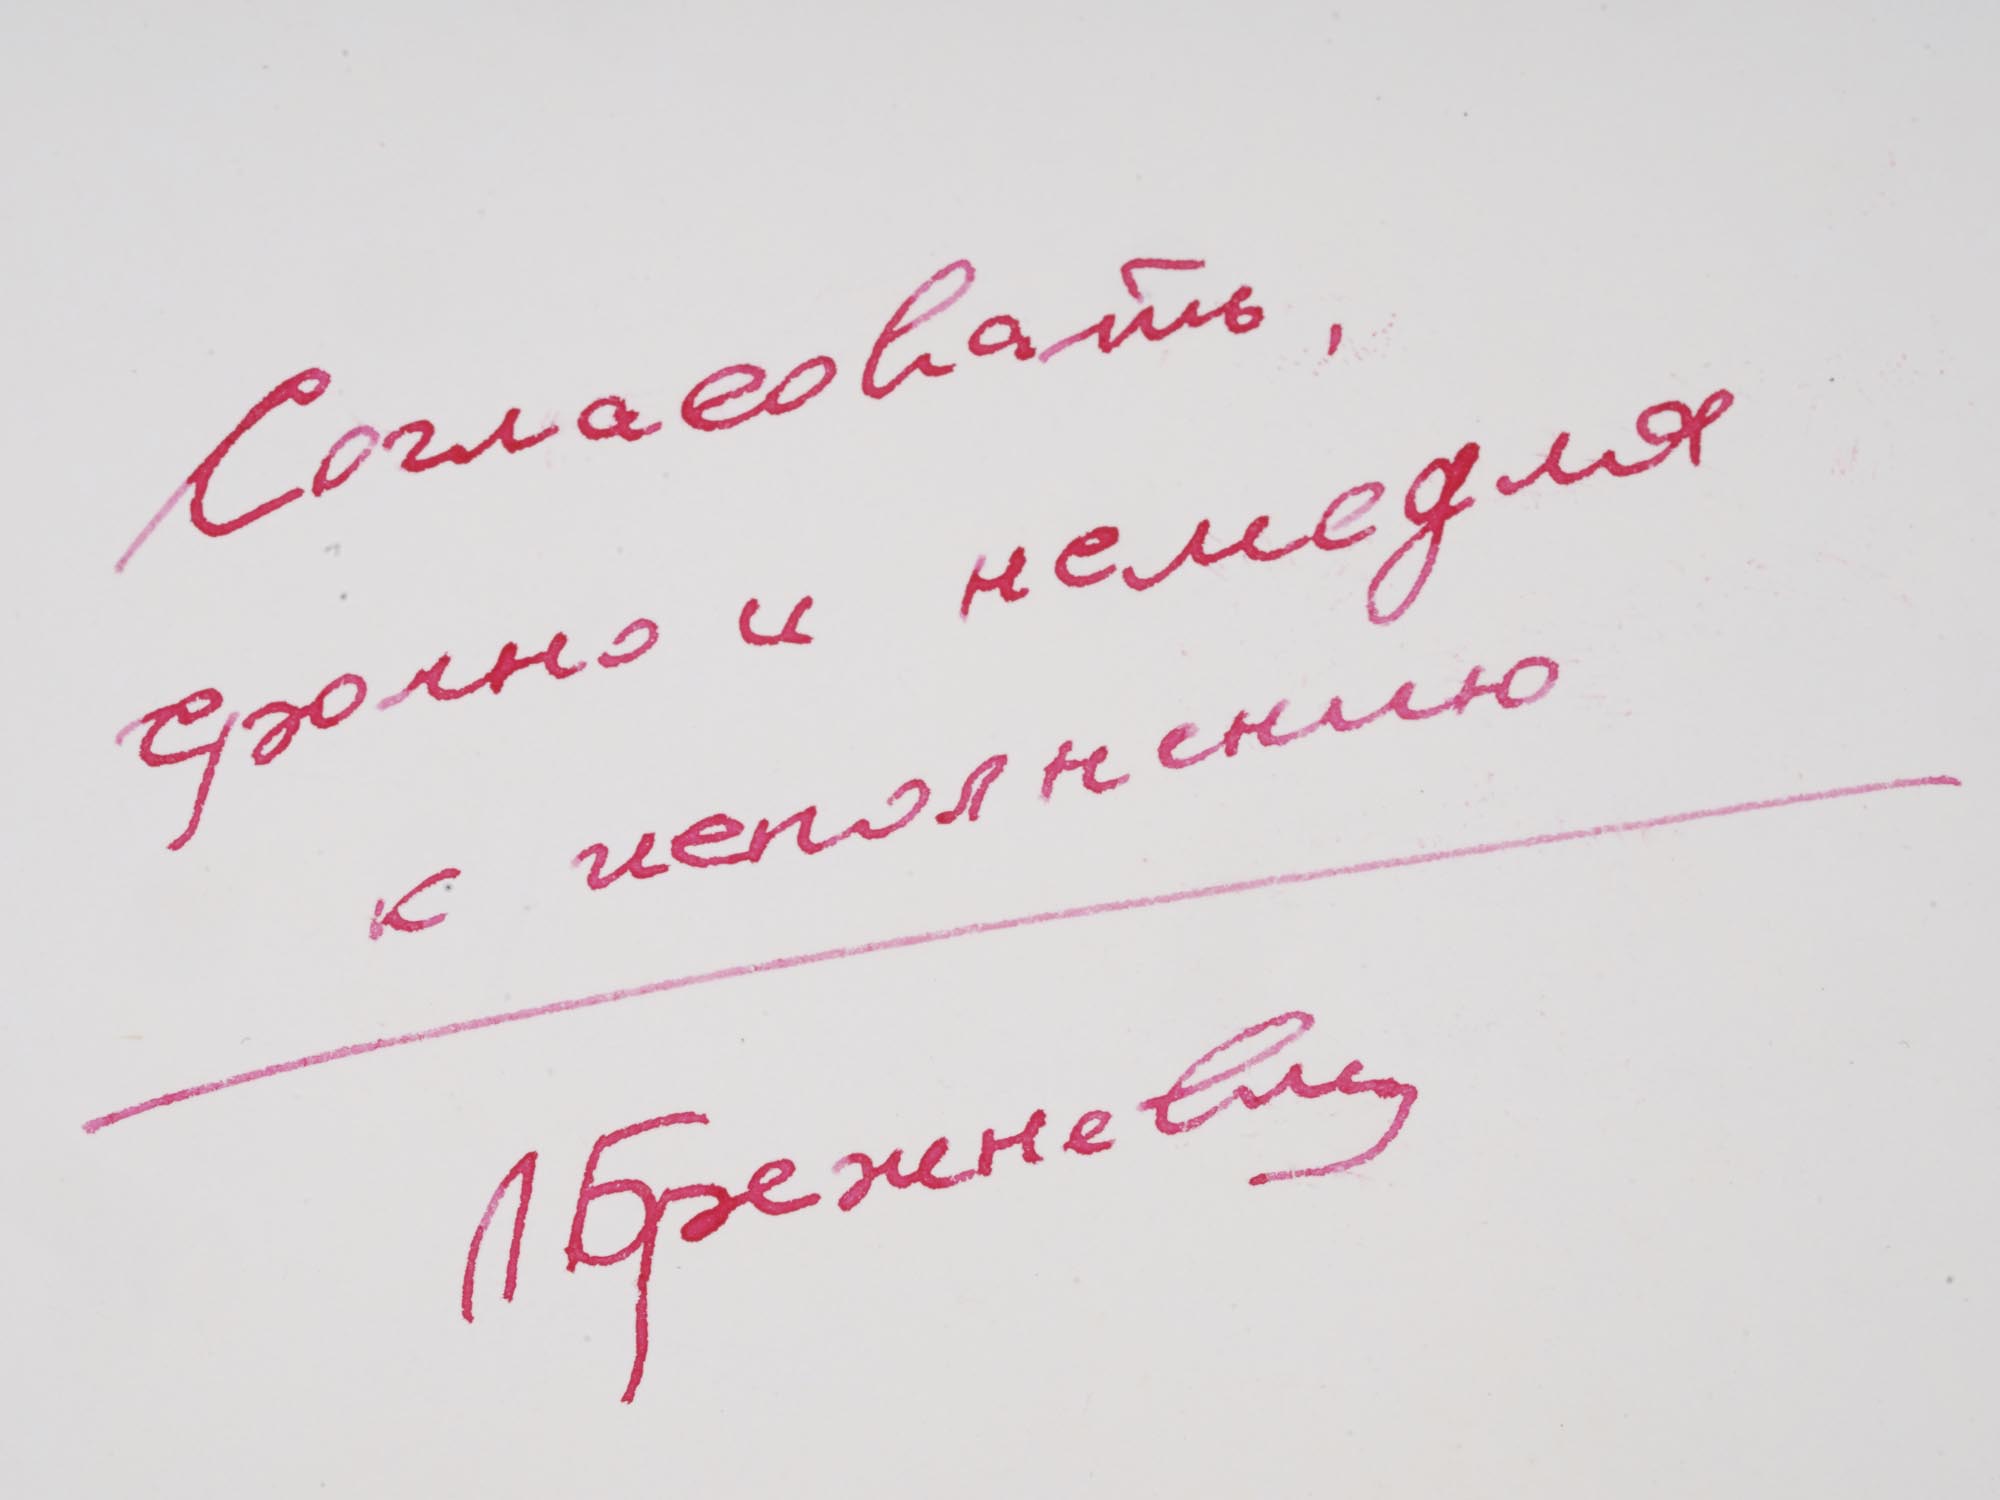 Согласовать,
срочно и немедля
к исполнению
Л Брежнев